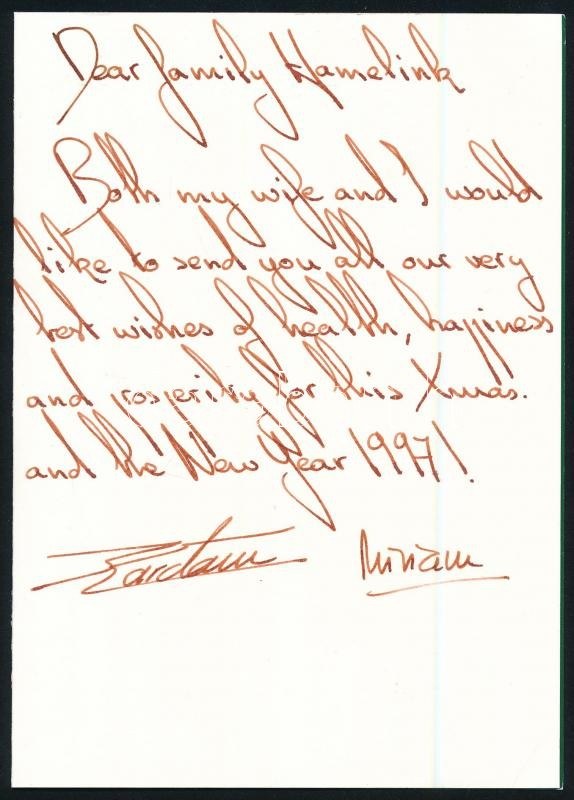 Dear family Hamelink
Both my wife and I would
like to send you all our very
best wishes of health, happiness
and prosperity for this Xmas.
and the New Year 1997!.
Kardam Miriam